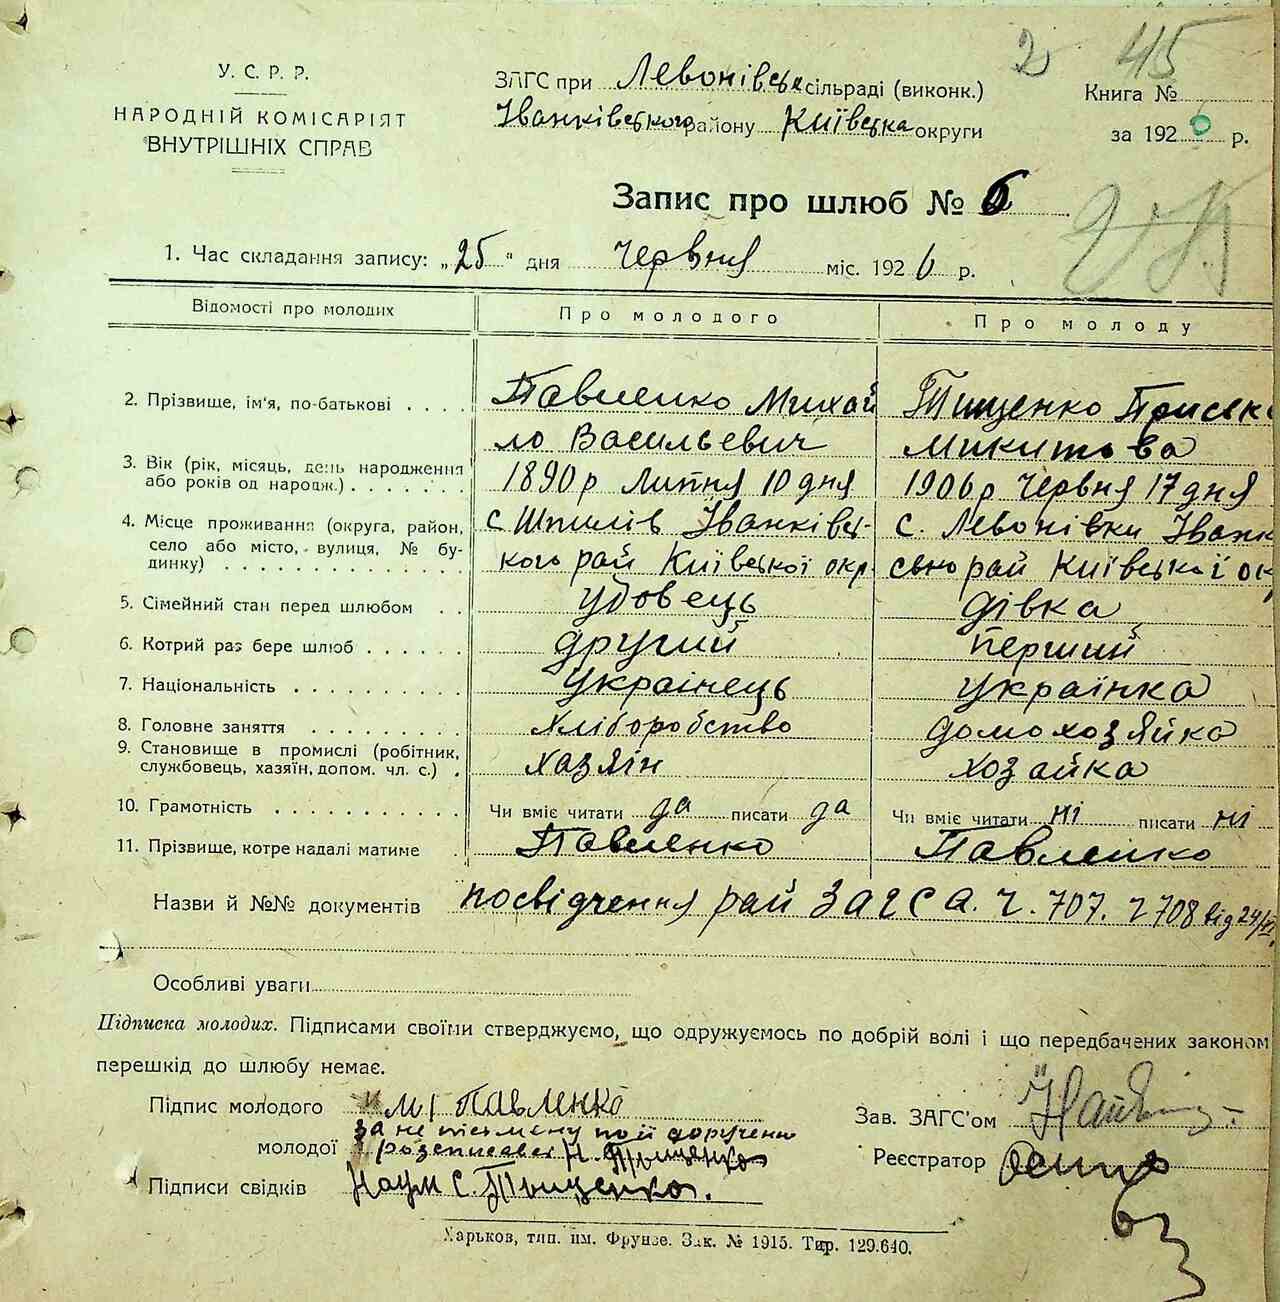 2 45
У. С. Р. Р.
НАРОДНІЙ КОМІСАРІЯТ
ВНУТРІШНІХ СПРАВ
ЗАГС при Левонівськ сільраді (виконк.)
Іванківського району Київська округи
Книга №
за 1926 р.
Запис про шлюб № 6
1. Час складання запису: „25" дня червня міс. 1926 р.
Відомості про молодих Про молодого Про молоду
2. Прізвище, ім'я, по-батькові Павленко Михай Тищенко Приськ
ло Васильевич Микитова
3. Вік (рік, місяць, день народження або років од народж.) 1890 р Липня 10 дня 1906 р Червня 17 дня
4. Місце проживання (округа, район, с Шпилів Іванківсь- с. Левонівки Іванк
село або місто, вулиця, № будинку) кого рай Київської окр. ського рай Київської ок
5. Сімейний стан перед шлюбом удовець дівка
6. Котрий раз бере шлюб другий перший
7. Національність Українець українка
8. Головне заняття хліборобство домохозяйка
9. Становище в промислі (робітник, службовець, хазяїн, допом. чл. с.) хазяін хозайка
10. Грамотність Чи вміє читати да писати да Чи вміє читати ні писати ні
11. Прізвище, котре надалі матиме Павленко Павленко
Назви й №№ документів посвідчення рай ЗАГСА. Ч. 707. 2708 від 24/VI
Особливі уваги
Підписка молодих. Підписами своїми стверджуємо, що одружуємось по добрій волі і що передбачених законом
перешкід до шлюбу немає.
Підпис молодого М Павленко
молодої за не письмену по її дорученю
розписавсі Н. Тыщенко
Підписи свідків Наум С. Тыщенко.
Зав. ЗАГС'ом
Реєстратор
Харьков, тип. им. Фрунзе. Зак. № 1915. Тир. 129.640.